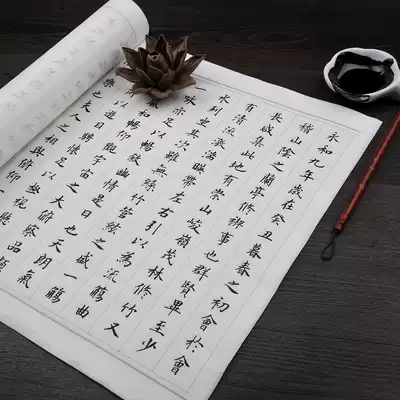 永和九年歲在癸丑暮春之初會於會
稽山陰之蘭亭修禊事也群賢畢至少
長咸集此地有崇山峻嶺茂林修竹又
有清流激湍映帶左右引以為流觴曲
水列坐其次雖無絲竹管弦之盛一觴
一咏亦足以暢敘幽情是日也天朗氣
風和暢仰觀宇宙之大俯察品類
以遊目騁懷足以極視聽
樂也夫人之相與俯仰